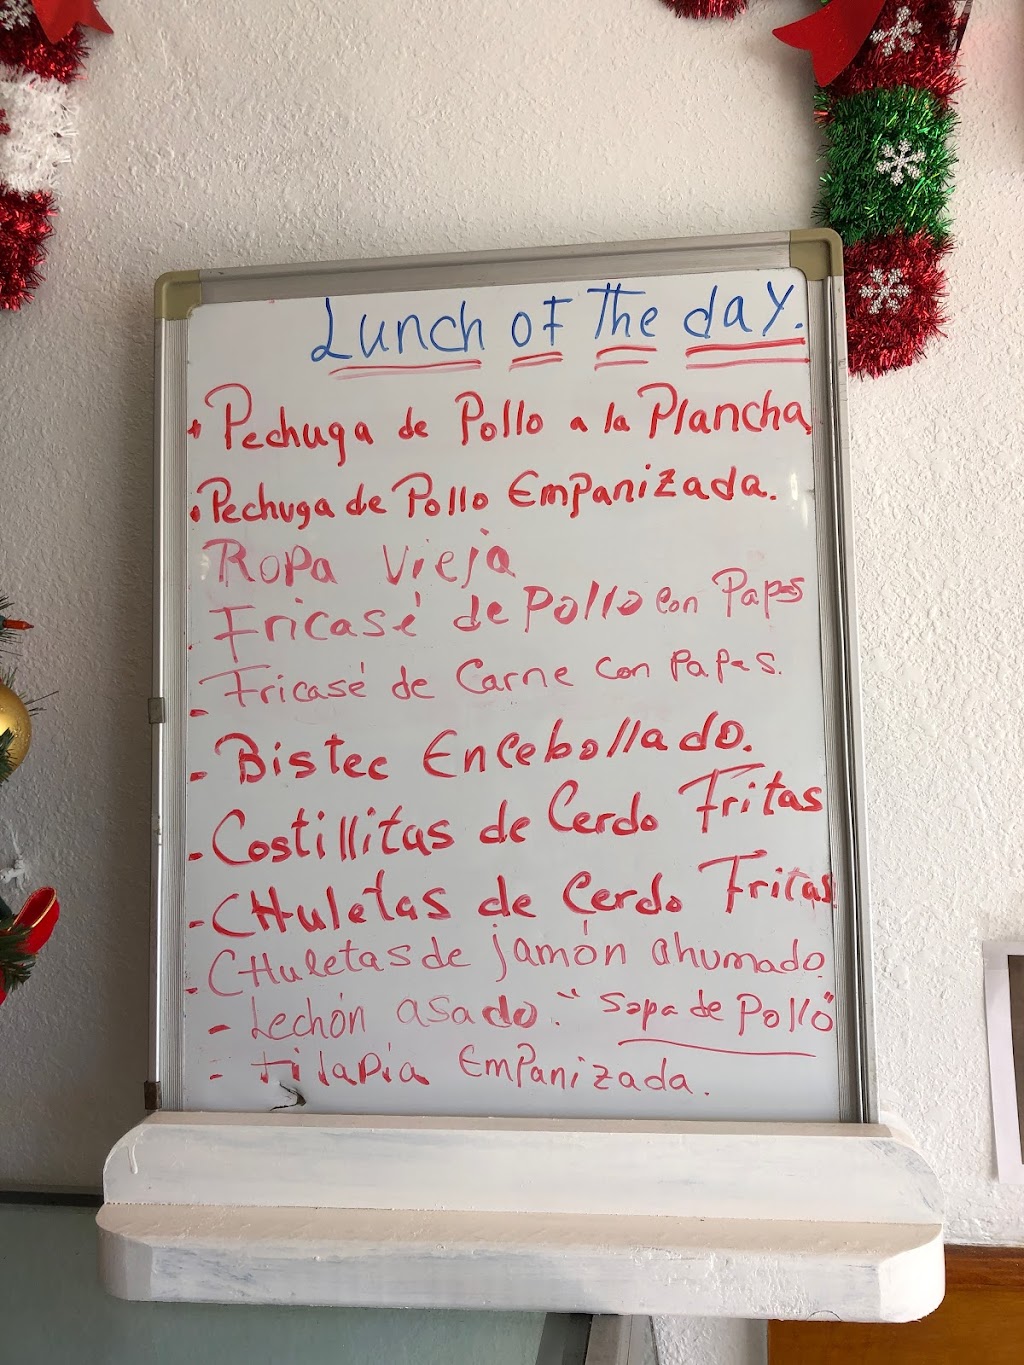 Lunch of The day.
• Pechuga de Pollo a la Plancha
• Pechuga de Pollo Empanizada.
Ropa Vieja
- Fricasé de Pollo con Papas
- Fricasé de Carne con Papas.
- Bistec Encebollado.
- Costillitas de Cerdo Fritas
- CHuletas de Cerdo Fritas
- CHuletas de jamón ahumado
- Lechón asado. "Sopa de Pollo"
- tilapia Empanizada.